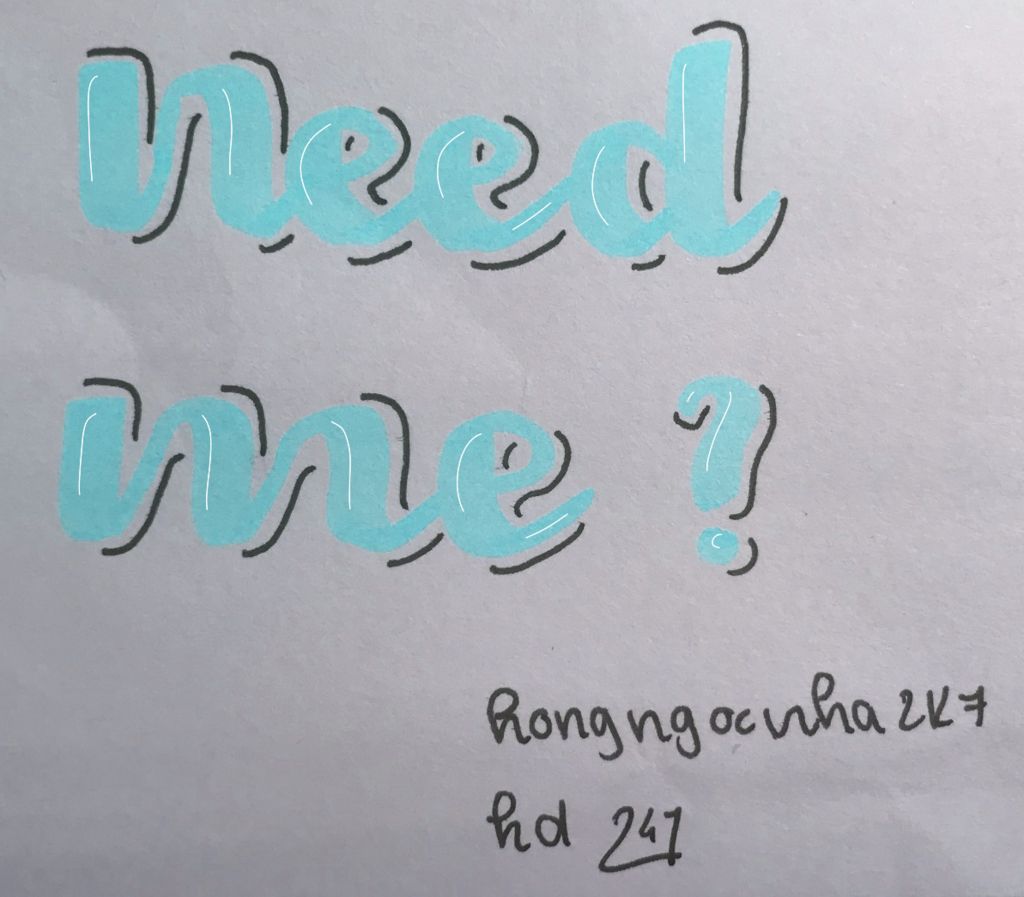 Need
me ?
hongngocnha2k7
hd 247